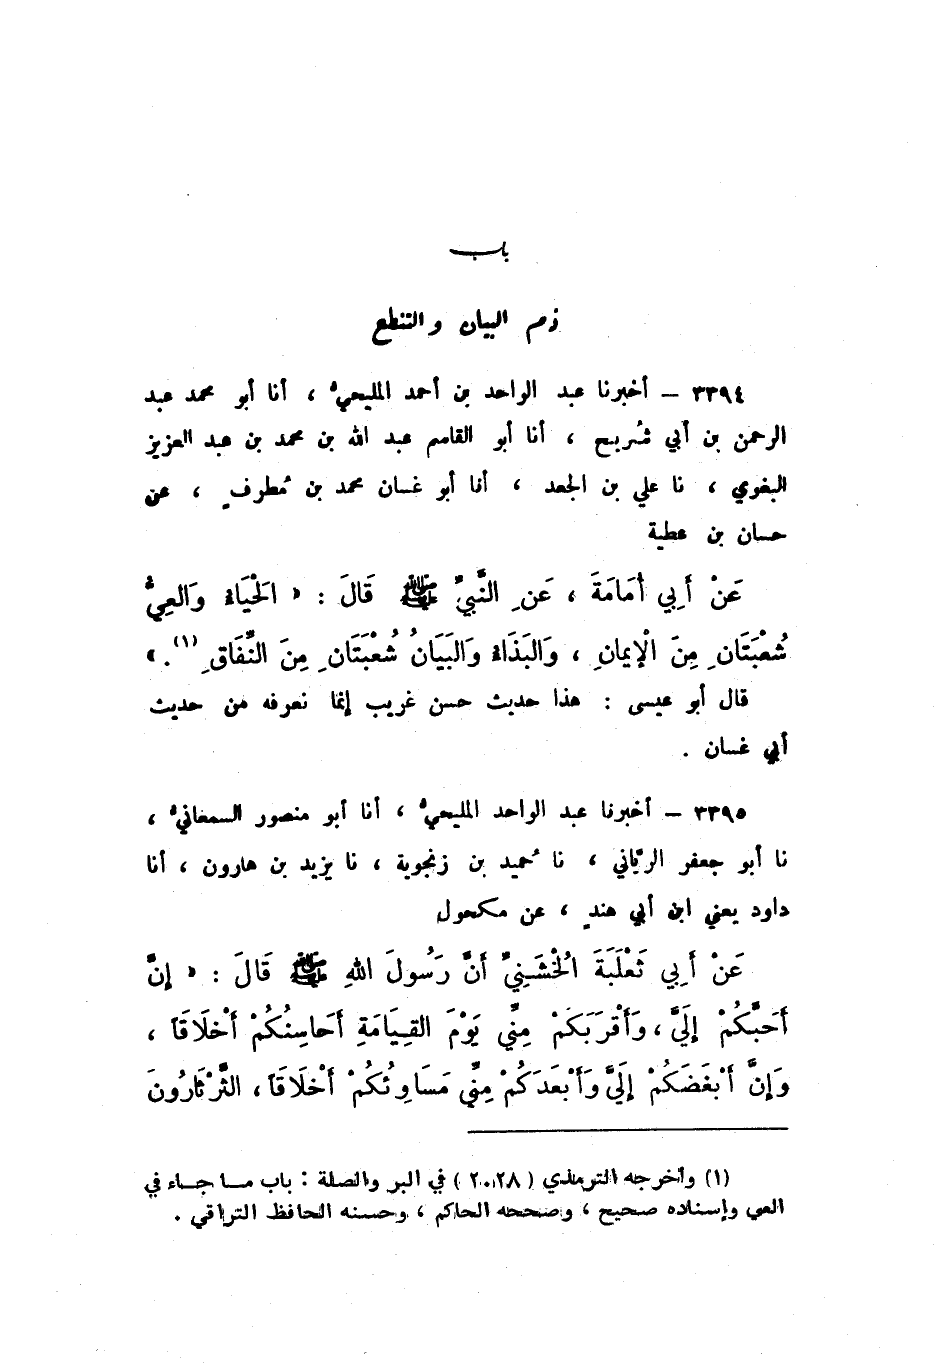 باب
ذم البيان والتنطع
٣٣٩٤ – أخبرنا عبد الواحد بن أحمد المليحيُّ ، أنا أبو محمد عبد
الرحمن بن أبي شُريح ، أنا أبو القاسم عبد الله بن محمد بن عبد العزيز
البغوي ، نا علي بن الجعد ، أنا أبو غسان محمد بن مُطرفٍ ، عن
حسان بن عطية
عَنْ أَبِي أُمَامَةَ ، عَنِ النَّبِيِّ ﷺ قَالَ : « الْحَيَاءُ وَالعِيُّ
شُعْبَتَانِ مِنَ الْإيمانِ ، وَالبَذَاءُ وَالبَيَانُ شُعْبَتَانِ مِنَ النِّفَاقِ (١) . »
قال أبو عيسى : هذا حديث حسن غريب إنما نعرفه من حديث
أبي غسان .
٣٣٩٥ – أخبرنا عبد الواحد المليحيُّ ، أنا أبو منصور السمعانيُّ ،
نا أبو جعفر الريّاني ، نا حُميد بن زنجوية ، نا يزيد بن هارون ، أنا
داود يعني ابن أبي هندٍ ، عن مكحول
عَنْ أَبِي ثَعْلَبَةَ الْخُشَنِيِّ أَنَّ رَسُولَ اللهِ ﷺ قَالَ : « إنَّ
أَحَبَّكُمْ إلَيَّ ، وَأَقْرَبَكُمْ مِنِّي يَوْمَ القِيَامَةِ أَحَاسِنُكُمْ أَخْلَاقَاً ،
وَإنَّ أَبْغَضَكُمْ إلَيَّ وَأَبْعَدَكُمْ مِنِّي مَسَاوِئُكُمْ أَخْلَاقَاً ، الثَّرْثَارُونَ
(١) وأخرجه الترمذي ( ٢٠٢٨ ) في البر والصلة : باب مـا جـاء في
العي وإسناده صحيح ، وصححه الحاكم ، وحسنه الحافظ العراقي .